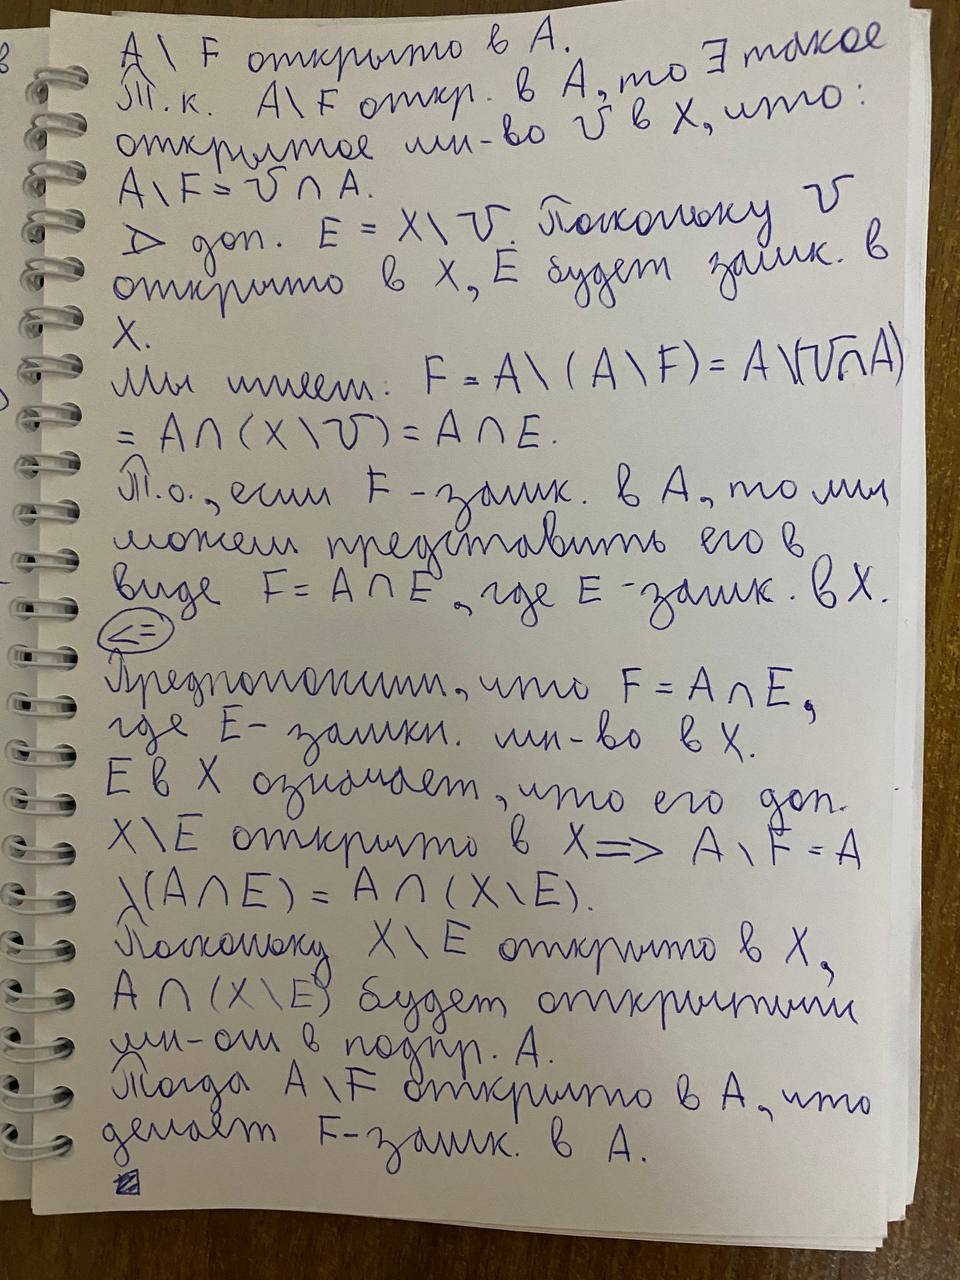 A \ F открыто в A.
Т.к. A\F откр. в A, то ∃ такое
открытое мн-во V в X, что:
A\F = V ∩ A.
▷ доп. E = X\V. Поскольку V
открыто в X, E будет замк. в
X.
Мы имеем: F = A\(A\F) = A\(V∩A)
= A∩(X\V) = A∩E.
Т.о., если F - замк. в A, то мы
можем представить его в
виде F = A∩E, где E - замк. в X.
<=
Предположим, что F = A∩E,
где E - замкн. мн-во в X.
E в X означает, что его доп.
X\E открыто в X => A\F = A
\(A∩E) = A∩(X\E).
Поскольку X\E открыто в X,
A∩(X\E) будет открытым
мн-ом в подпр. A.
Тогда A\F открыто в A, что
делает F - замк. в A.